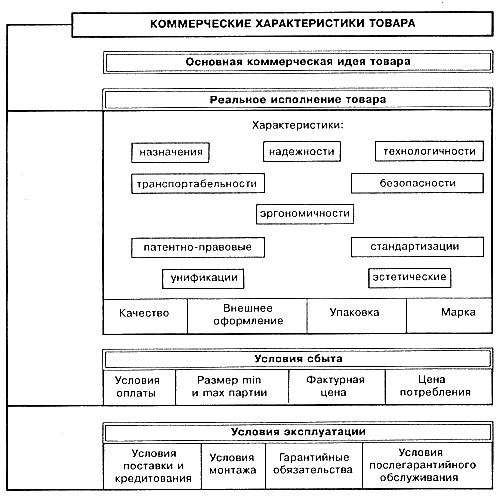 КОММЕРЧЕСКИЕ ХАРАКТЕРИСТИКИ ТОВАРА
Основная коммерческая идея товара
Реальное исполнение товара
Характеристики:
назначения надежности технологичности
транспортабельности безопасности
эргономичности
патентно-правовые стандартизации
унификации эстетические
Качество Внешнее оформление Упаковка Марка
Условия сбыта
Условия оплаты Размер min и max партии Фактурная цена Цена потребления
Условия эксплуатации
Условия поставки и кредитования Условия монтажа Гарантийные обязательства Условия послегарантийного обслуживания